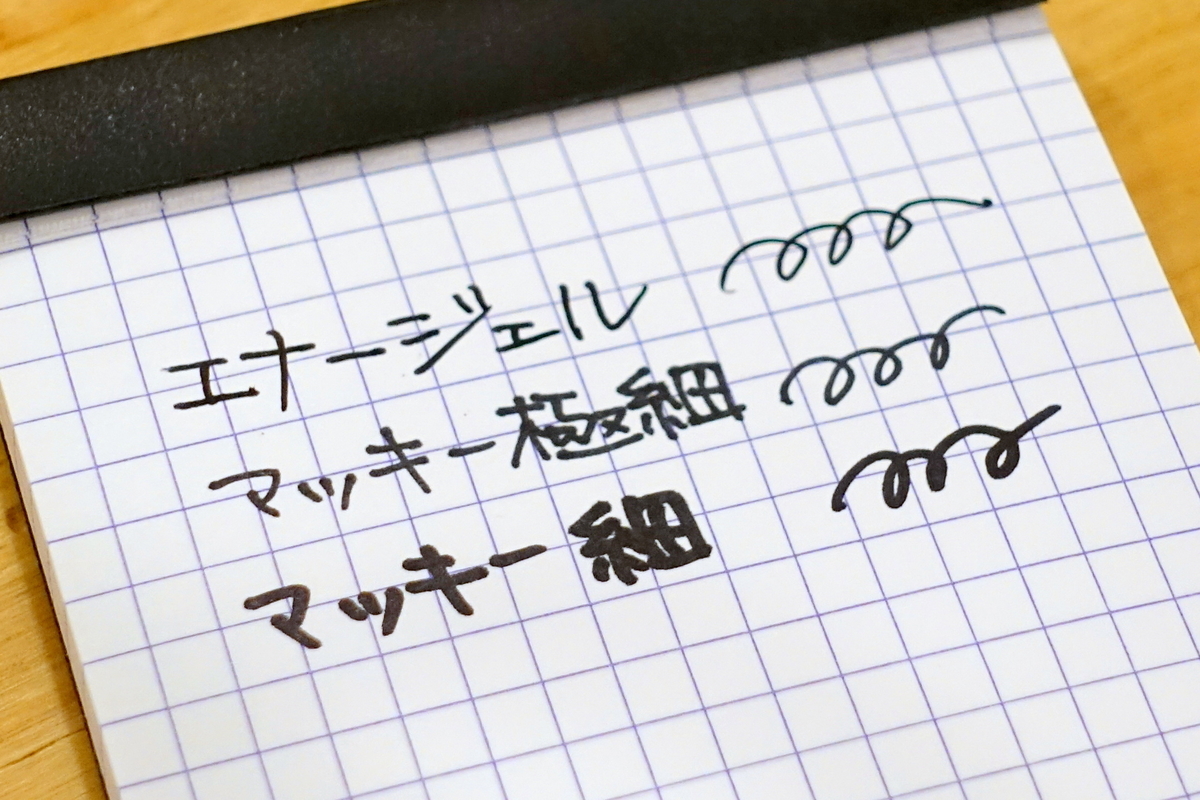 エナージェル
マッキー極細
マッキー細